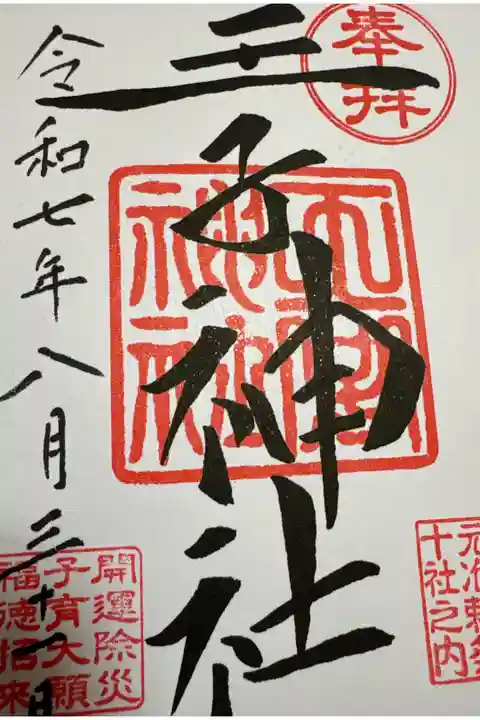 奉拝
王子神社
元准勅祭
十社之内
令和七年八月三十一日
開運除災
子育大願
福徳招来